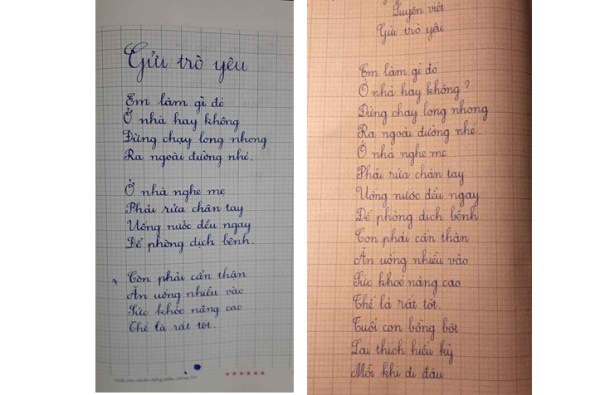 Gửi trò yêu
Em làm gì đó
Ở nhà hay không
Đừng chạy long nhong
Ra ngoài đường nhé.
Ở nhà nghe mẹ
Phải rửa chân tay
Uống nước đều ngay
Để phòng dịch bệnh.
Con phải cẩn thận
Ăn uống nhiều vào
Sức khỏe nâng cao
Thế là rất tốt.
Luyện viết
Gửi trò yêu
Em làm gì đó
Ở nhà hay không ?
Đừng chạy long nhong
Ra ngoài đường nhé.
Ở nhà nghe mẹ
Phải rửa chân tay
Uống nước đều ngay
Để phòng dịch bệnh
Con phải cẩn thận
Ăn uống nhiều vào
Sức khỏe nâng cao
Thế là rất tốt.
Tuổi con bồng bột
Lại thích hiếu kỳ
Mỗi khi đi đâu